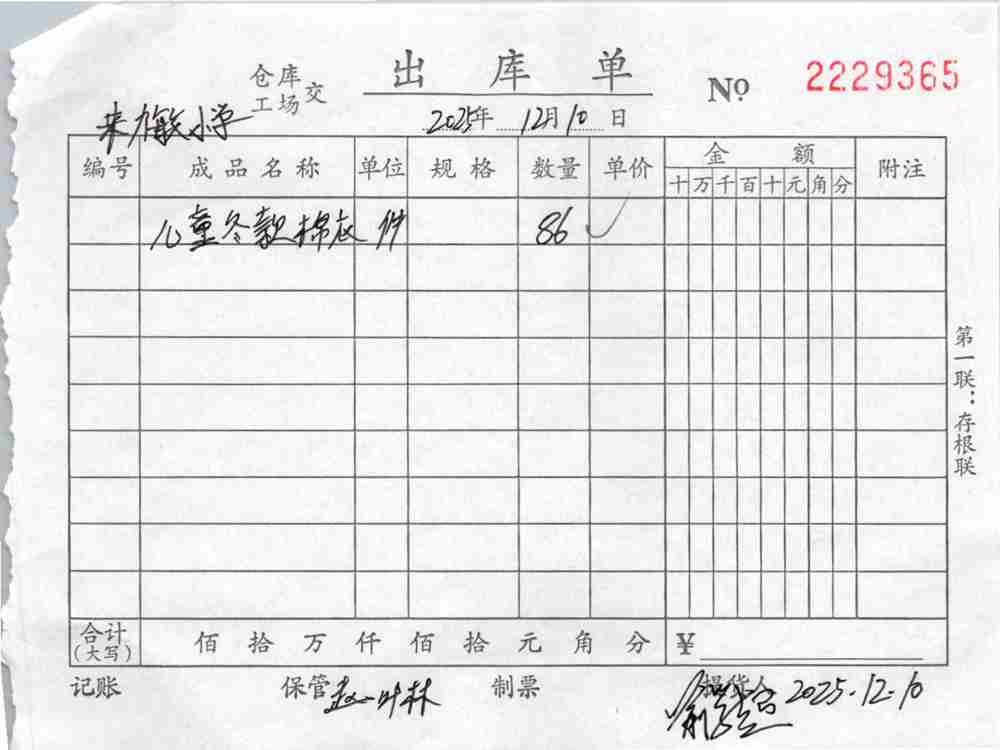 出库单
仓库
工场 交
№ 2229365
小学
2025年 12月10日
编号 成品名称 单位 规格 数量 单价 金额 附注
十 万 千 百 十 元 角 分
儿童冬款棉衣 件 86 ✓
第一联：存根联
合计
(大写) 佰 拾 万 仟 佰 拾 元 角 分 ¥
记账 保管 赵叶林 制票 提货人 2025.12.10